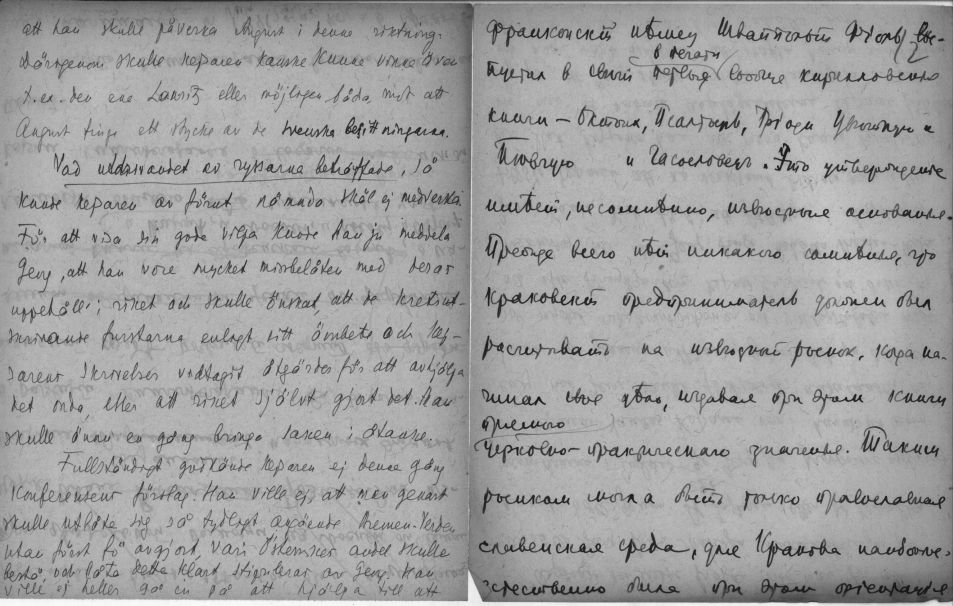 att han skulle påverka August i denne riktning.
Därigenom skulle kejsaren kanske kunna vinna även
t.ex. den ena Lausitz eller möjligen båda, mot att
August finge ett stycke av de svenska besittningarna.
Vad undsvandet av ryssarna beträffade, så
kunde kejsaren av förut nämnda skäl ej medverka.
För att visa sin goda vilja kunde han ju meddela
Georg, att han vore mycket missbelåten med deras
uppehåll i riket och skulle önskat, att de kretsut-
skrivande furstarna enligt sitt ämbete och kej-
sarens skrivelser vidtagit åtgärder för att avhjälpa
det onda, eller att riket självt gjort det. Han
skulle ännu en gång bringa saken i åtanke.
Fullständigt godkände kejsaren ej denna gång
konferensens förslag. Han ville ej, att man genast
skulle utlåta sig så tydligt angående Bremen-Verden
utan först få avgjort, vari Österrikes andel skulle
bestå, och låta detta klart stipuleras av Georg. Han
ville ej heller gå in på att hjälpa till att
2
франконский немец Швайпольт Фиоль вы-
в печати
пустил в свет первые вообще кирилловские
книги — Октоих, Псалтырь, Триоди Цветную и
Постную и Часословец. Это утверждение
имеет, несомненно, известные основания.
Прежде всего нет никакого сомнения, что
краковский предприниматель должен был
рассчитывать на известный рынок, когда на-
чинал свое дело, издавая при этом книги
прямого
церковно-практического значения. Таким
рынком могла быть только православная
славянская среда, для Кракова наиболее
естественно была при этом ориентация